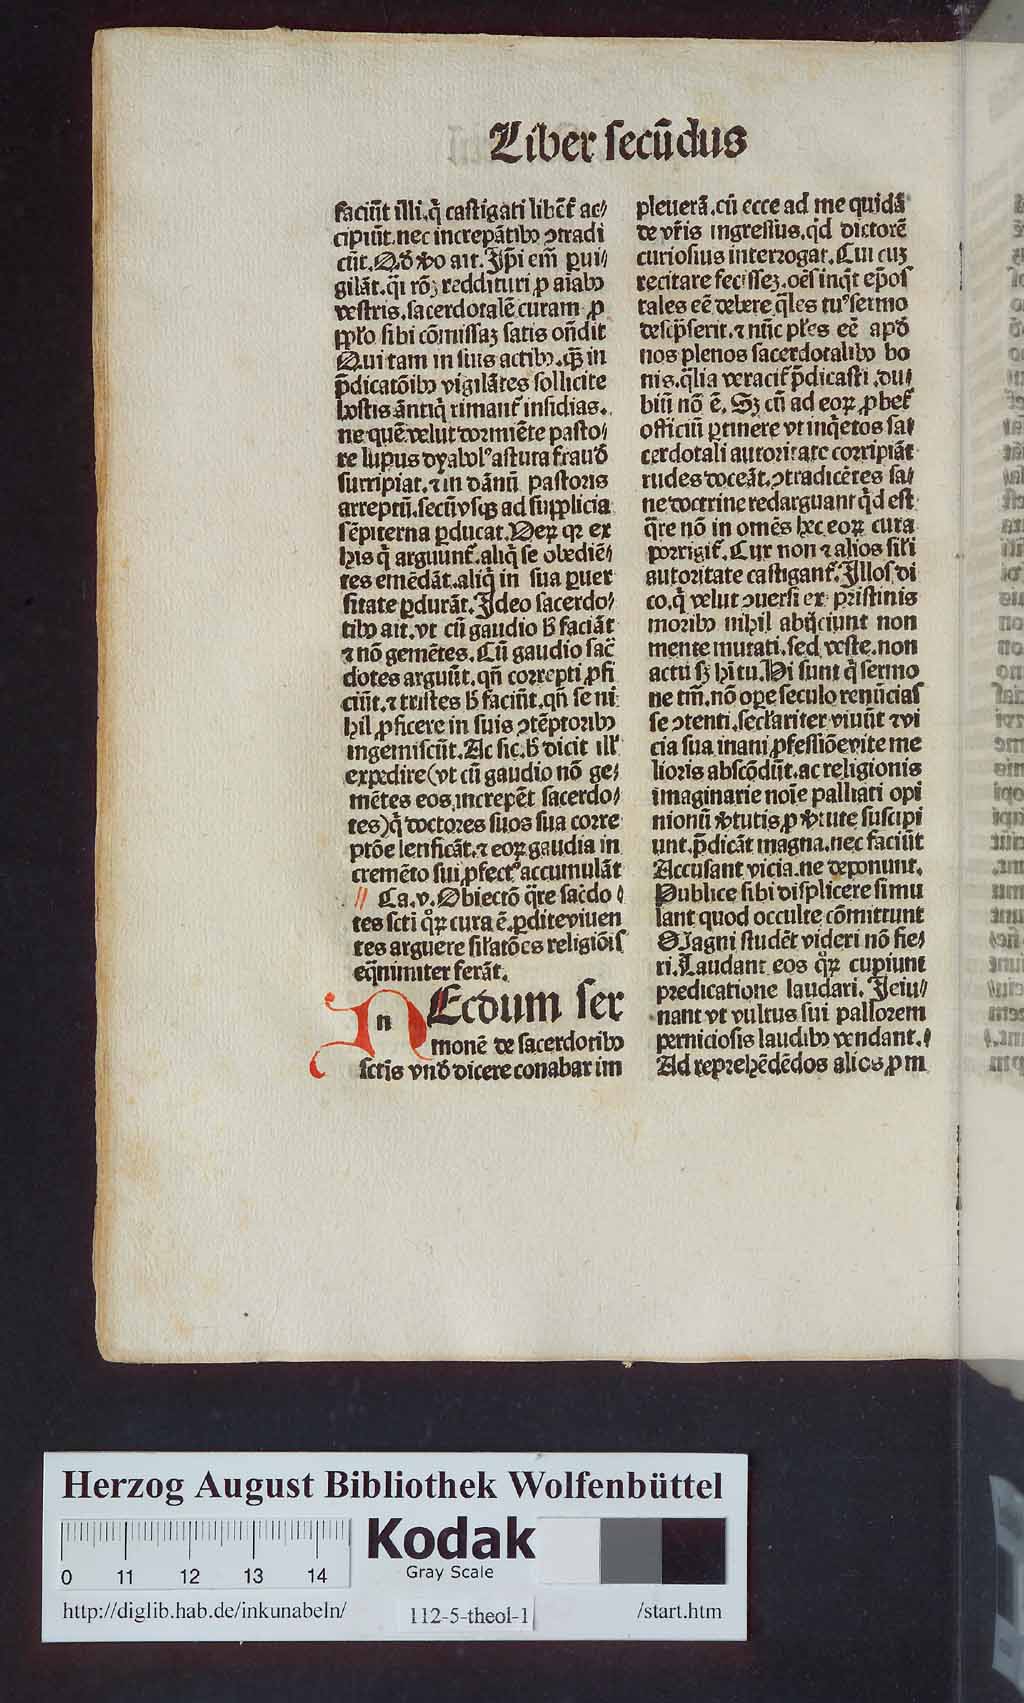 Liber secūdus
faciūt illi.q̄ castigati libēt᷑ ac⸗
cipiūt.nec increpātibꝰ ꝯtradi
cūt. Qð ꝟo ait. Jpi̅ em̅ ꝑui⸗
gilāt.q̅i rōꝫ reddituri ꝓ aīabꝰ
vestris.sacerdotalē curam ꝓ
pp̄lo sibi cōmissaꝫ satis on̄dit
Qui tam in suis actibꝰ.qꝫ in
p̄dicatōibꝰ vigilātes sollicite
hostis āntiq̄ rimant᷑ insidias.
ne quē velut dormiēte pasto⸗
re lupus dyabolꝰ astuta fraud̄
surripiat.⁊ in dānū pastoris
arreptū.secū vsqꝫ ad supplicia
sēpiterna ꝑducat. Veꝝ qꝛ ex
his q̄ arguunt᷑.aliq̄ se obediē⸗
tes emēdāt.aliq̄ in sua ꝑuer
sitate ꝑdurāt. Jdeo sacerdo⸗
tibꝰ ait.vt cū gaudio h̄ faciāt
⁊ nō gemētes. Cū gaudio sac̄
dotes arguūt.qn̄ correpti ꝓfi
ciūt.⁊ tristes h̄ faciūt.qn̄ se ni
hil ꝓficere in suis ꝯtēptoribꝰ
ingemiscūt. Ac sic.h̄ dicit ill̄
expedire(vt cū gaudio nō ge⸗
mētes eos increpēt sacerdo⸗
tes)q̄ doctores suos sua corre
ptōe letificāt.⁊ eoꝝ gaudia in
cremēto sui ꝓfectꝰ accumulāt
// Ca.v. Obiectō q̄re sac̄do⸗
tes sc̄ti qͦꝝ cura ē.ꝑdite viuen
tes arguere sil̄atōes religiōis
eq̄nimiter ferāt.
n NEcdum ser
monē de sacerdotibꝰ
sctīs vnð dicere conabar im
pleuerā.cū ecce ad me quidā
de vr̄is ingressus.qð dictorē
curiosius interrogat. Cui cuꝫ
recitare fecisseꝫ.oēs inqͥt ep̄os
tales eē debere q̄les tuꝰ sermo
descp̄serit.⁊ nūc pl̄es eē apð
nos plenos sacerdotalibꝰ bo
nis.q̄lia veracit᷑ p̄dicasti.du⸗
biū nō ē. Sꝫ cū ad eoꝝ ꝓbet᷑
officiū ꝑtinere vt inq̄etos sa⸗
cerdotali autoritate corripiāt
rudes doceāt.ꝯtradicētes sa⸗
ne doctrine redarguant qð est
q̄re nō in omēs hec eoꝝ cura
porrigit᷑. Cur non ⁊ alios sil̄i
autoritate castigant᷑. Jllos di
co.q̄ velut ꝯuersi ex pristinis
moribꝰ nihil abijciunt non
mente mutati.sed veste.non
actu sꝫ hītu. Hi sunt q̄ sermo
ne tm̄.nō oꝑe seculo renūcias
se ꝯtenti.secl̄ariter viuūt ⁊ vi
cia sua inani ꝓfessiōe vite me
lioris abscōdūt.ac religionis
imaginarie noīe palliati opi
nionū ꝟtutis.ꝓ ꝟtute suscipi
unt.p̄dicāt magna.nec faciūt
Accusant vicia.ne deponunt.
Publice sibi displicere simu
lant quod occulte cōmittunt
Magni studēt videri nō fie⸗
ri. Laudant eos qͦꝝ cupiunt
predicatione laudari. Jeiu⸗
nant vt vultus sui pallorem
perniciosis laudibꝰ vendant.
Ad reprehēdēdos alios ꝓm
Herzog August Bibliothek Wolfenbüttel
0 11 12 13 14
Kodak
Gray Scale
http://diglib.hab.de/inkunabeln/ 112-5-theol-1 /start.htm